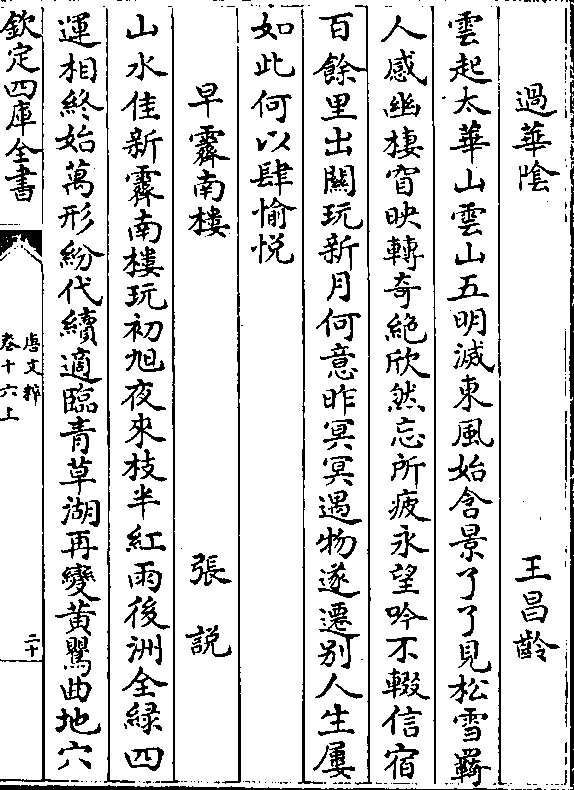 過華隂 王昌齡
雲起太華山雲山五明滅東風始含景了了見松雪羇
人感幽棲窅映轉奇絶欣然忘所疲永望吟不輟信宿
百餘里出關玩新月何意昨冥冥遇物遂遷别人生屢
如此何以肆愉悦
早霽南樓 張説
山水佳新霽南樓玩初旭夜來枝半紅雨後洲全緑四
運相終始萬形紛代續適臨青草湖再變黄鸎曲地穴
欽定四庫全書
唐文粹
卷十六上
二十